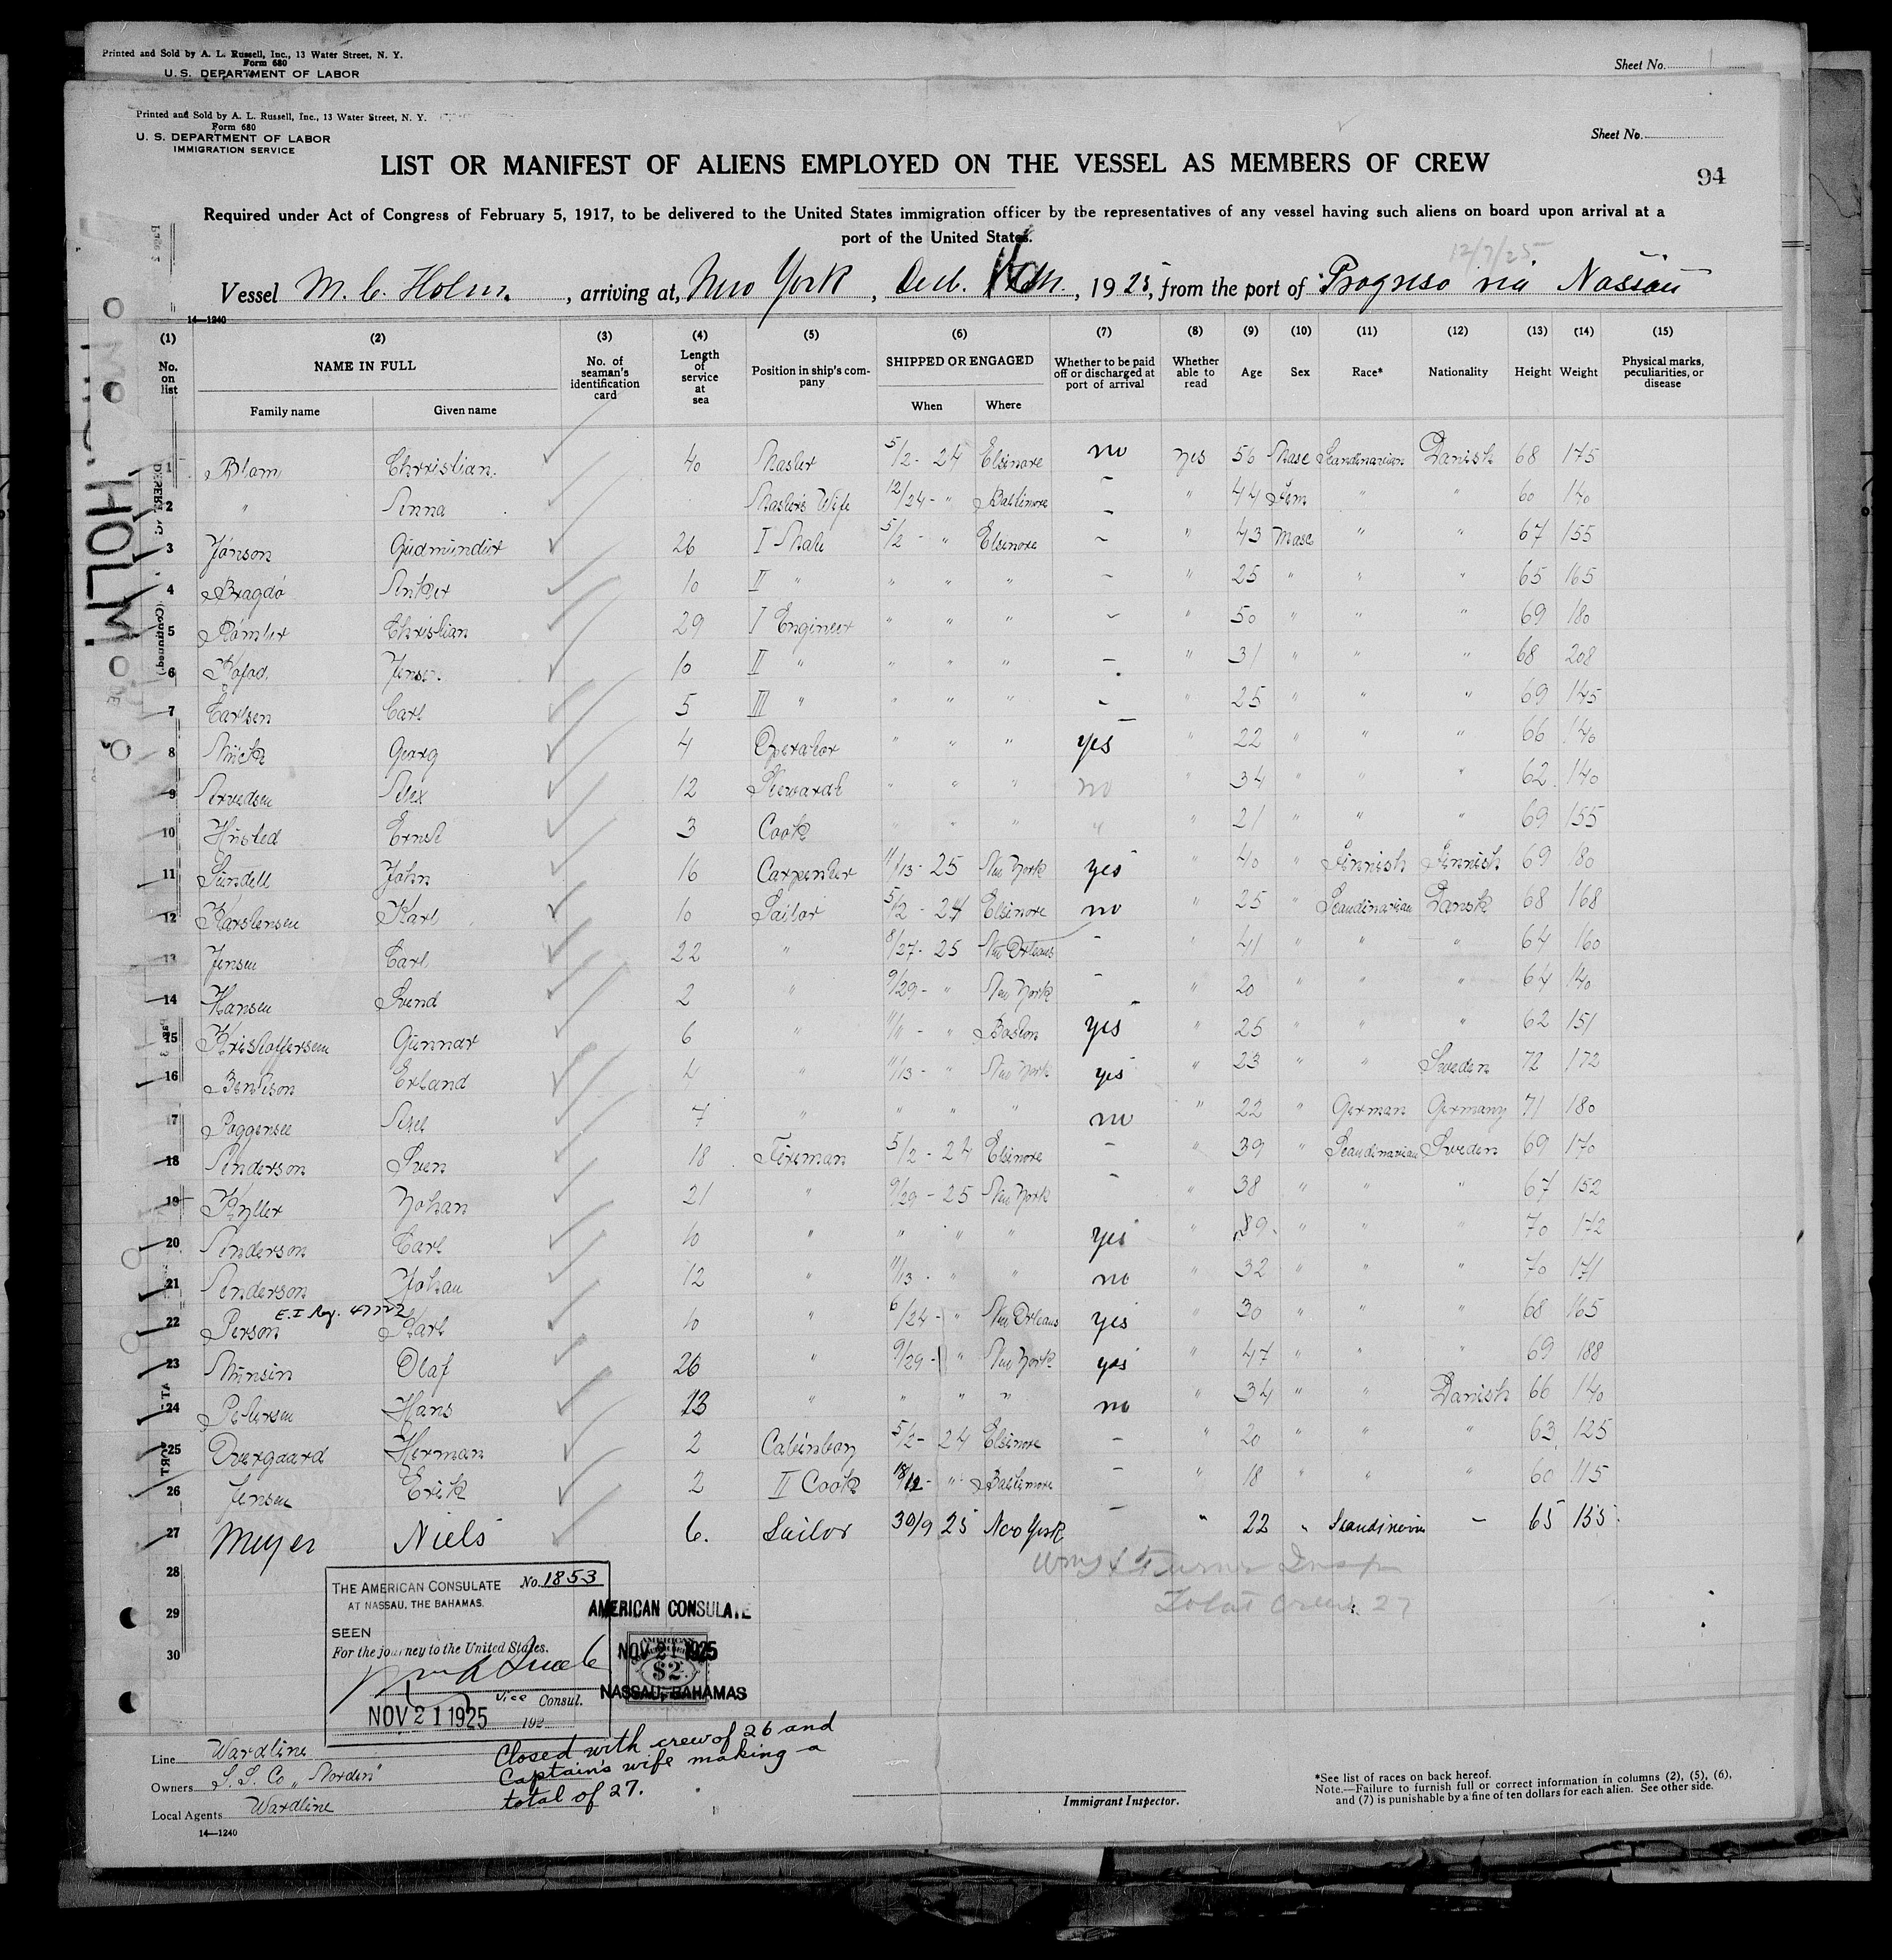 Printed and Sold by A. L. Russell, Inc., 13 Water Street, N. Y.
Form 680
U. S. DEPARTMENT OF LABOR
Sheet No.
Printed and Sold by A. L. Russell, Inc., 13 Water Street, N. Y.
Form 680
U. S. DEPARTMENT OF LABOR
IMMIGRATION SERVICE
Sheet No.
LIST OR MANIFEST OF ALIENS EMPLOYED ON THE VESSEL AS MEMBERS OF CREW
94
Required under Act of Congress of February 5, 1917, to be delivered to the United States immigration officer by the representatives of any vessel having such aliens on board upon arrival at a
port of the United States.
12/7/25
Vessel M. C. Holm, arriving at, New York, Dec. 1925, from the port of Progreso via Nassau
14—1240
(1) (2) (3) (4) (5) (6) (7) (8) (9) (10) (11) (12) (13) (14) (15)
No. on list NAME IN FULL No. of seaman's identification card Length of service at sea Position in ship's company SHIPPED OR ENGAGED Whether to be paid off or discharged at port of arrival Whether able to read Age Sex Race* Nationality Height Weight Physical marks, peculiarities, or disease
Family name Given name When Where
1 Christian 40 Master 5/2 - 24 Elsinore no yes 56 Masc Scandinavian Danish 68 175
2 " Anna Master's Wife 12/24 - " Baltimore - " 44 Fem " " 60 140
3 Jónson Gudmundur 26 I Mate 5/2 - " Elsinore - " 43 Masc " " 67 155
4 10 II " " " " - " 25 " " " 65 165
5 Christian 29 I Engineer " " " - " 50 " " " 69 180
6 Jensen 10 II " " " " - " 31 " " " 68 208
7 Carlsen Carl 5 III " " " " - " 25 " " " 69 145
8 Georg 4 Operator " " " yes " 22 " " " 66 140
9 Arvedsen 12 Stewardt " " " no " 34 " " " 62 140
10 Husted Ernst 3 Cook " " " " " 21 " " " 69 155
11 Sundell John 16 Carpenter 11/13 - 25 New York yes " 40 " Finnish Finnish 69 180
12 Karstensen Karl 10 Sailor 5/2 - 24 Elsinore no " 25 " Scandinavian Dansk 68 168
13 Jensen Carl 22 " 8/27 - 25 New Orleans - " 41 " " " 64 160
14 Hansen Svend 2 " 9/29 - " New York - " 20 " " " 64 140
15 Kristoffersen Gunnar 6 " 11/11 - " Boston yes " 25 " " " 62 151
16 Bentson Erland 4 " 11/13 - " New York yes " 23 " " Sweden 72 172
17 Poggensee 7 " " " " no " 22 " German Germany 71 180
18 Anderson Sven 18 Fireman 5/2 - 24 Elsinore - " 39 " Scandinavian Sweden 69 170
19 Kyller Johan 21 " 9/29 - 25 New York - " 38 " " " 67 152
20 Anderson Carl 10 " " " " yes " 39 " " " 70 172
21 Anderson Johan 12 " 11/13 - " " no " 32 " " " 70 171
E.I Reg. 47722
22 Person Karl 10 " 6/24 - " New Orleans yes " 30 " " " 68 165
23 Munsin Olaf 26 " 9/29 - " New York yes " 47 " " " 69 188
24 Petersen Hans 13 " " " " no " 34 " " Danish 66 140
25 Overgaard Herman 2 Cabinboy 5/2 - 24 Elsinore - " 20 " " " 63 125
26 Jensen Erik 2 II Cook - " Baltimore - " 18 " " " 60 115
27 Meyer Niels 6. Sailor 30/9 25 New York - " 22 " Scandinavin - 65 155
28
29
30
Total Crew 27
THE AMERICAN CONSULATE No. 1853
AT NASSAU, THE BAHAMAS.
SEEN
For the journey to the United States.
Vice Consul.
NOV 21 1925 192
AMERICAN CONSULATE
NOV 21 1925
AMERICAN
$2
NASSAU, BAHAMAS
Line Wardline
Owners S. S. Co „Norden"
Local Agents Wardline
14—1240
Closed with crew of 26 and
Captain's wife making a
total of 27.
Immigrant Inspector.
*See list of races on back hereof.
Note.—Failure to furnish full or correct information in columns (2), (5), (6),
and (7) is punishable by a fine of ten dollars for each alien. See other side.
HOLM